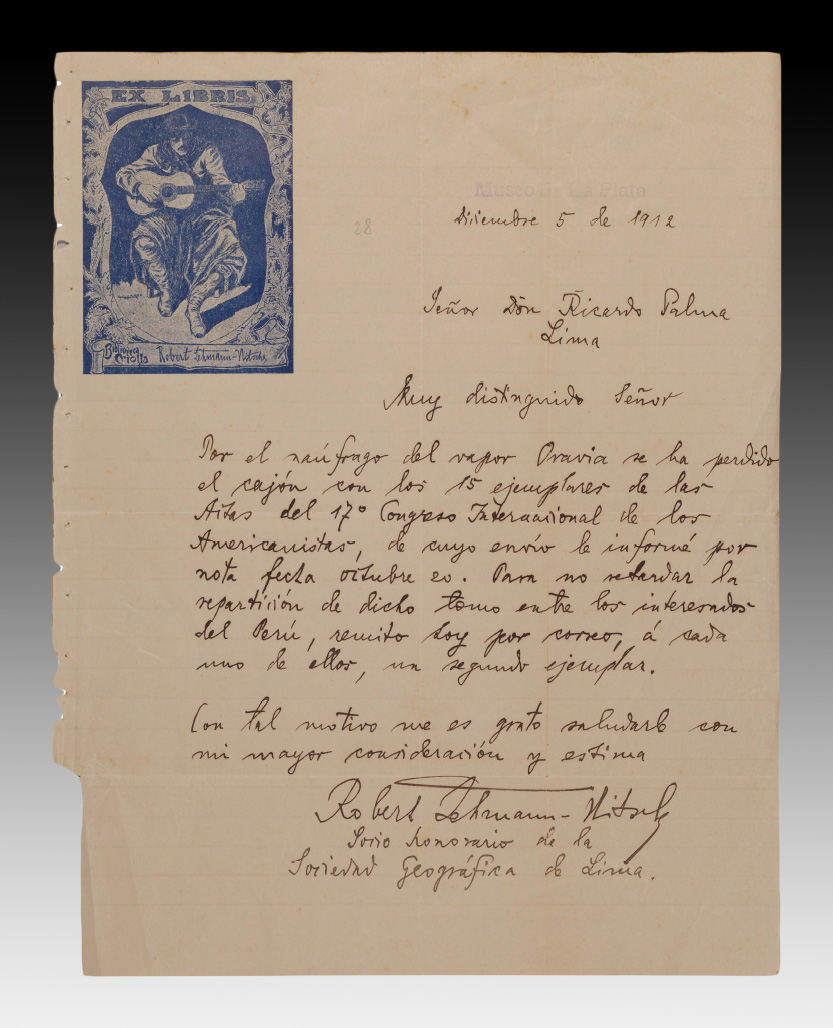 EX LIBRIS
Biblioteca
Criolla
Robert Lehmann-Nitsche
28
Museo de La Plata
Diciembre 5 de 1912
Señor Dōn Ricardo Palma
Lima
Muy distinguido Señor
Por el naúfrago del vapor Oravia se ha perdido
el cajón con los 15 ejemplares de las
Actas del 17º Congreso Internacional de los
Americanistas, de cuyo envío le informé por
nota fecta octubre 20. Para no retardar la
repartición de dicho tomo entre los interesados
del Perú, remito hoy por correo, á cada
uno de ellos, un segundo ejemplar.
Con tal motivo me es grato saludarle con
mi mayor consideración y estima
Robert Lehmann-Nitsche
Socio honorario de la
Sociedad Geográfica de Lima.